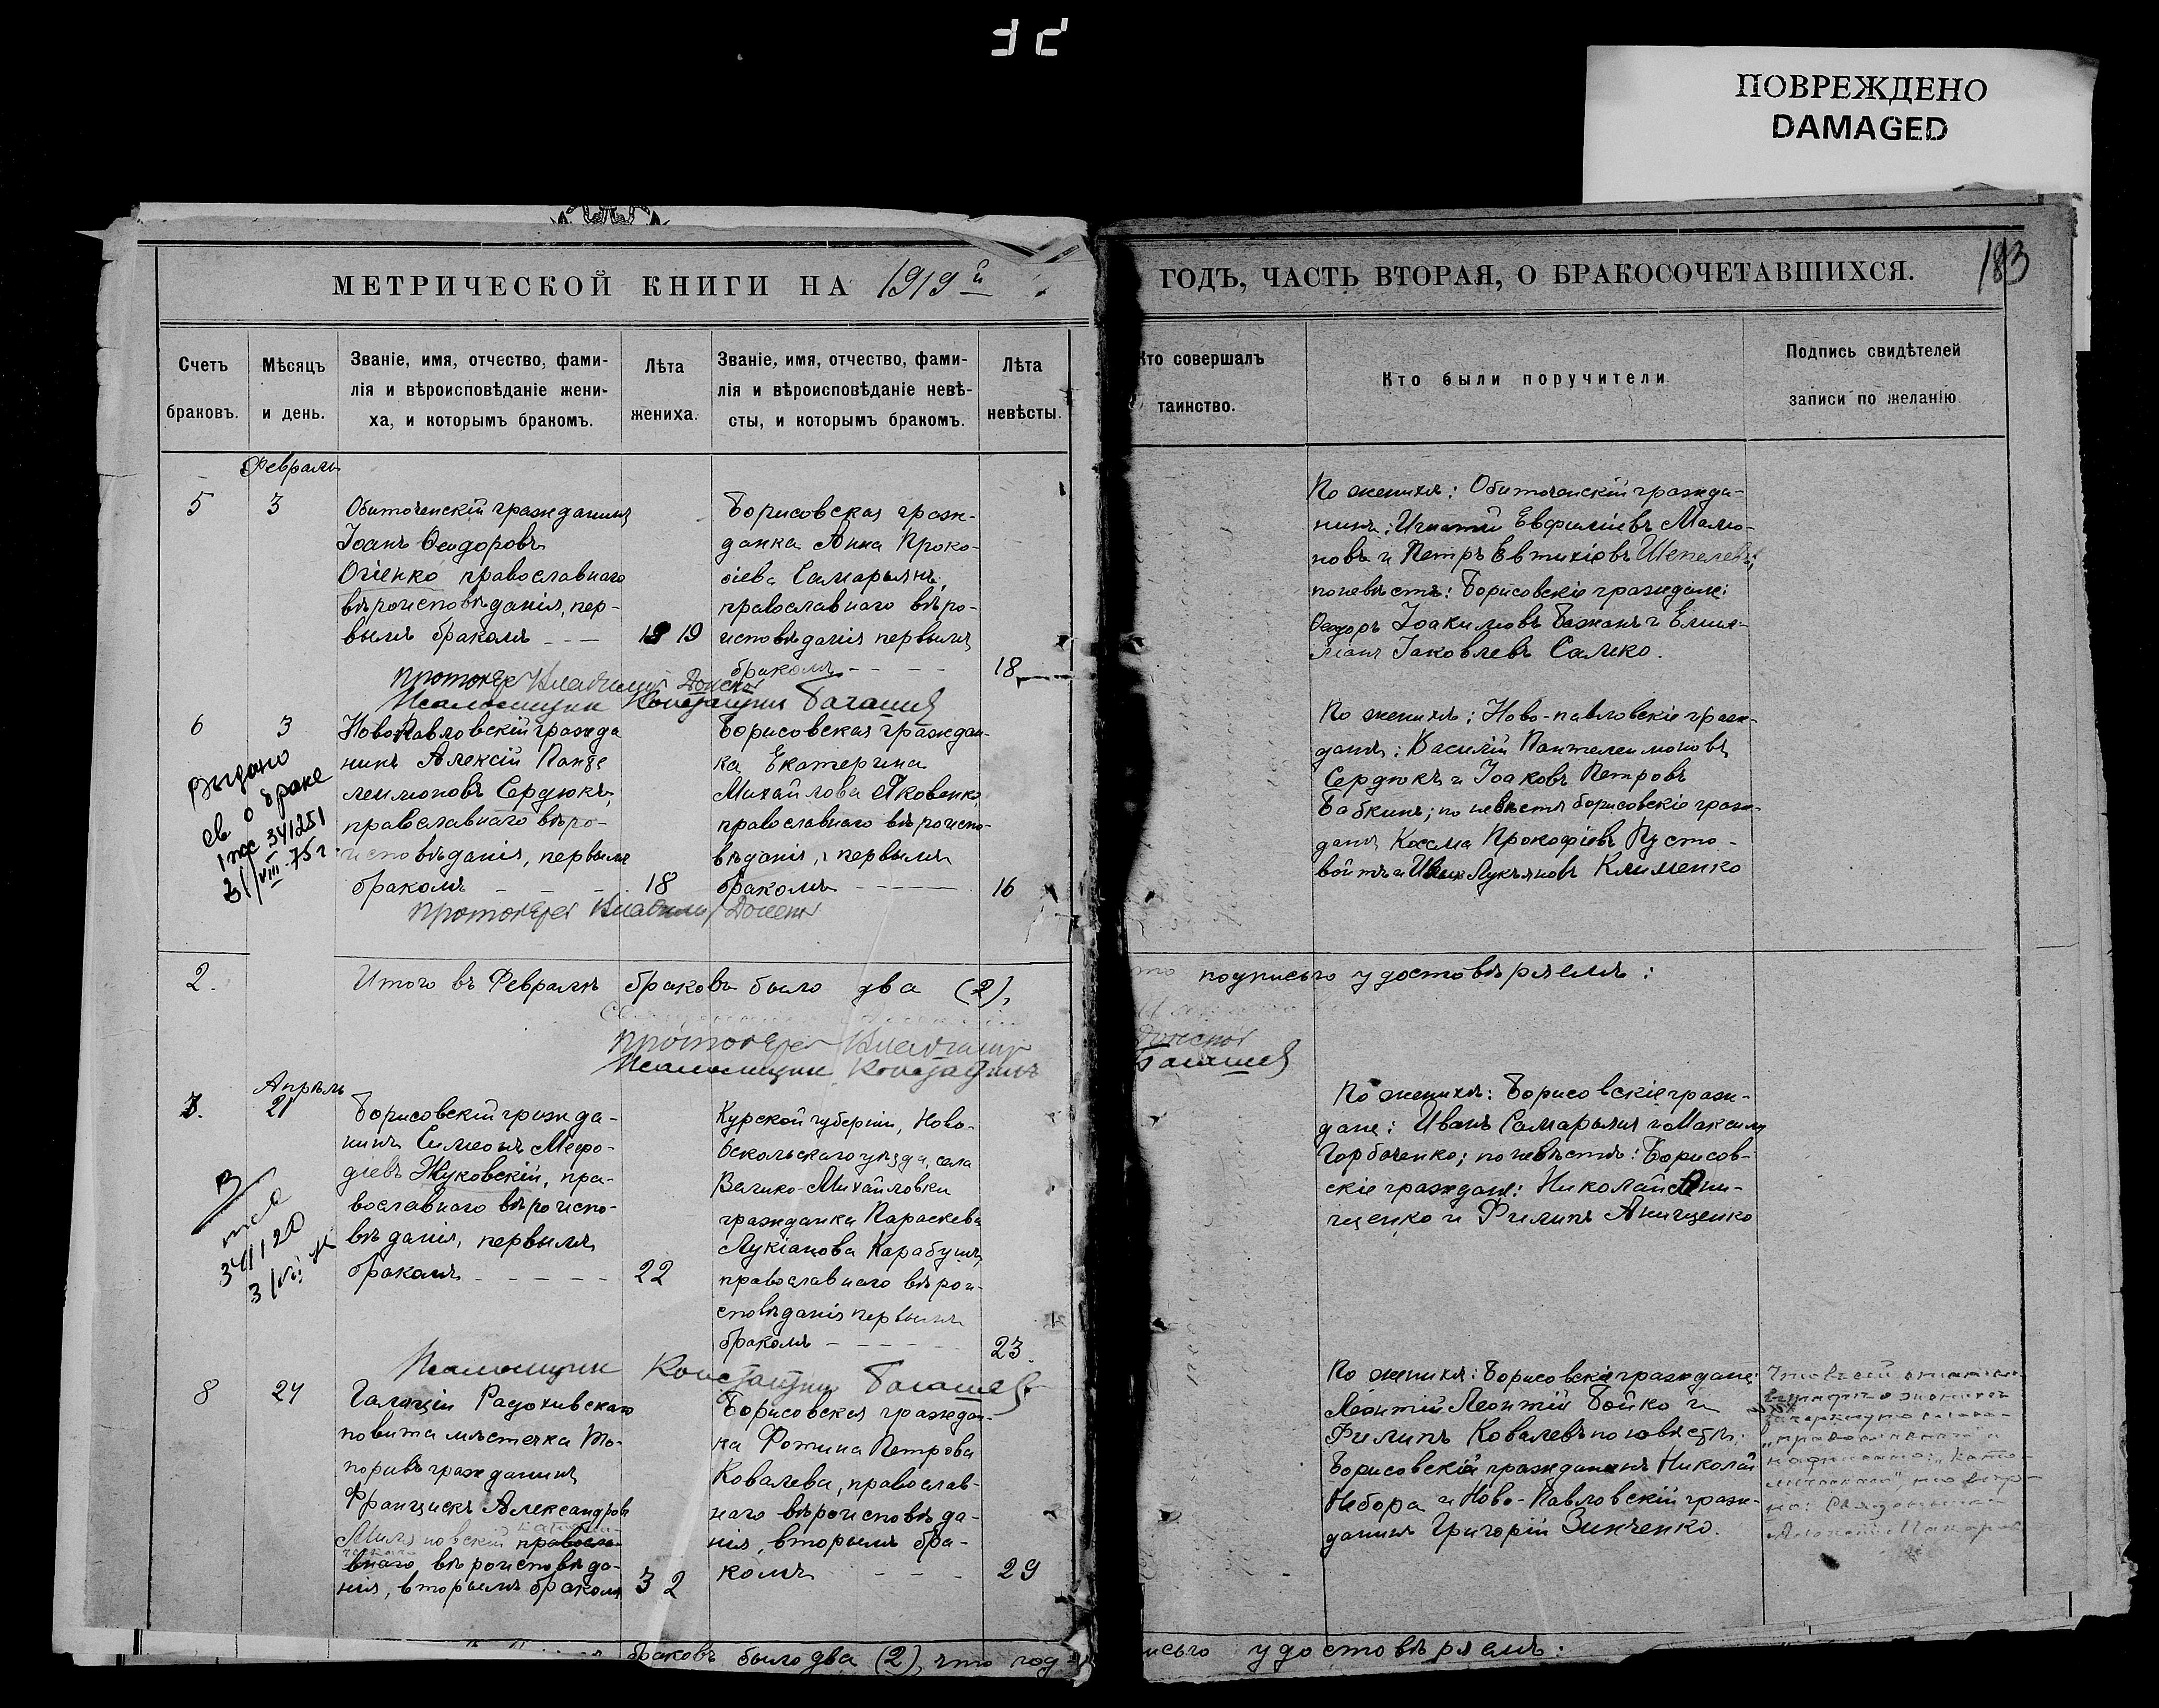 ПОВРЕЖДЕНО
DAMAGED
МЕТРИЧЕСКОЙ КНИГИ НА 1919й
ГОДЪ, ЧАСТЬ ВТОРАЯ, О БРАКОСОЧЕТАВШИХСЯ.
183
Счетъ браковъ.
Мѣсяцъ и день.
Званіе, имя, отчество, фами-
лія и вѣроисповѣданіе жени-
ха, и которымъ бракомъ.
Лѣта жениха.
Званіе, имя, отчество, фами-
лія и вѣроисповѣданіе невѣ-
сты, и которымъ бракомъ.
Лѣта невѣсты.
Кто совершалъ
таинство.
Кто были поручители
Подпись свидѣтелей
записи по желанію
Февраль
5
3
Обиточенскій гражданинъ
Іоанъ Ѳеодоровъ
Огіенко православнаго
вѣроисповѣданія, пер-
вымъ бракомъ
19
Борисовская граж-
данка Анна Проко-
фіева Самарынъ,
православнаго вѣро-
исповѣданія первымъ
бракомъ
18
По женихѣ: Обиточенскій гражда-
нинъ: Игнатій Евфиміевъ Малю-
новъ и Петръ Евтихіевъ Шепелевъ;
по невѣстѣ: Борисовскіе граждане:
Ѳеодоръ Іоакимовъ Бажанъ и Емил-
іанъ Іаковлевъ Салко.
Протоіерей Владимір Донской
Псаломщик Константин Багашев
6
3
Ново-Павловскій гражда
нинъ Алексій Панте
леимоновъ Сердюкъ,
православнаго вѣро-
исповѣданія, первымъ
бракомъ
18
Борисовская граждан-
ка Екатерина
Михайлова Яковенко,
православнаго вѣроиспо-
вѣданія, первымъ
бракомъ
16
По женихѣ: Ново-павловскіе граж-
дане: Василій Пантелеимоновъ
Сердюкъ и Іоаковъ Петровъ
Бабкинъ; по невѣстѣ борисовскіе граж-
дане Косма Прокофіевъ Пусто-
войтъ и Иванъ Лукьяновъ Клименко
Выдано
св о браке
1 жс 341251
21/VIII-75г.
Протоіерей Владимір Донской
2.
Итого въ Февралѣ браковъ было два (2),
то подписью удостовѣряемъ:
Протоіерей Владимир
Донской
Псаломщик Константинъ
Багашев
Апрѣль
7.
21
Борисовскій гражда-
нинъ Симеонъ Мефо-
діевъ Жуковскій, пра-
вославнаго вѣроиспо-
вѣданія, первымъ
бракомъ
22
Курской губерніи, Ново-
Оскольскаго уѣзда, села
Велико-Михайловки
гражданка Параскева
Лукіанова Карабушъ,
православнаго вѣрои-
сповѣданія первымъ
бракомъ
23.
По женихѣ: Борисовскіе граж-
дане: Иванъ Самарыня и Максимъ
Горбоченко; по невѣстѣ: Борисов-
скіе граждане: Николай Они-
щенко и Филипъ Анищенко
341120
Псаломщик Константин Багашев
8
24
Галиціи Радохивскаго
повита мѣстечка То-
поривъ гражданинъ
Францискъ Александровъ
православ-
внаго вѣроисповѣда-
нія, вторымъ бракомъ
32
Борисовская граждан-
ка Фотина Петрова
Ковалева, православ-
наго вѣроисповѣда-
нія, вторымъ бра-
комъ
29
По женихѣ: Борисовскіе граждане:
Леонтій Леонтій Бойко и
Филипъ Ковалевъ по невѣстѣ:
Борисовскій гражданинъ Николай
Небора и Ново-Павловскій граж-
данинъ Григорій Зинченко.
браковъ было два (2), что под-
исью удостовѣряемъ: